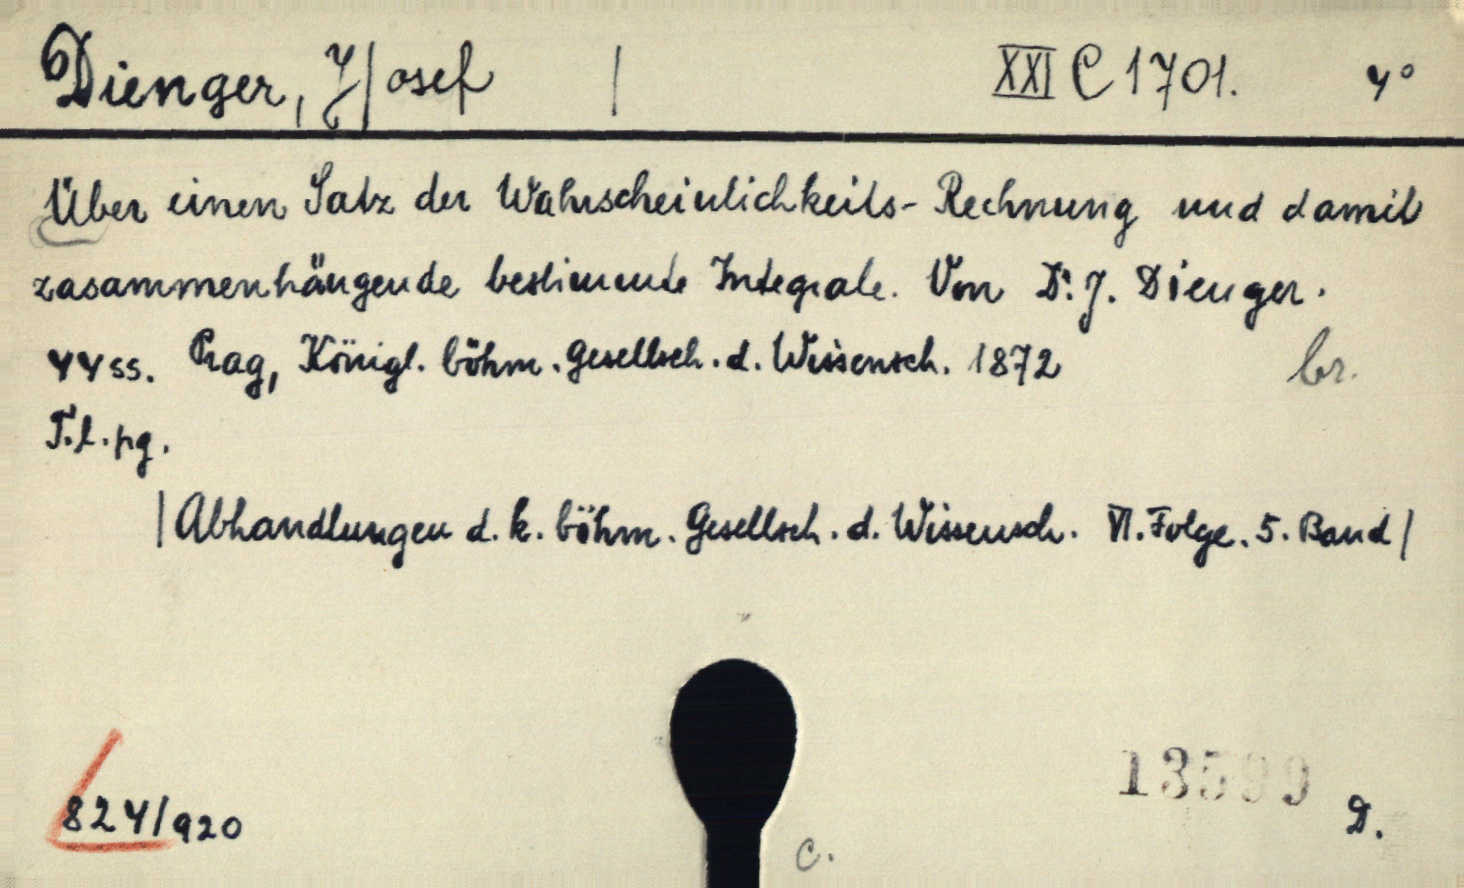 Dienger, J|osef | XXI C 1701. 4°
Über einen Satz der Wahrscheinlichkeits-Rechnung und damit
zasammenhängende bestimmte Integrale. Von Dr. J. Dienger.
44 ss. Prag, Königl. böhm. Gesellsch. d. Wissensch. 1872 br.
T. l. pg.
|Abhandlungen d. k. böhm. Gesellsch. d. Wissensch. VI. Folge. 5. Band|
13599
824/920 D.
c.